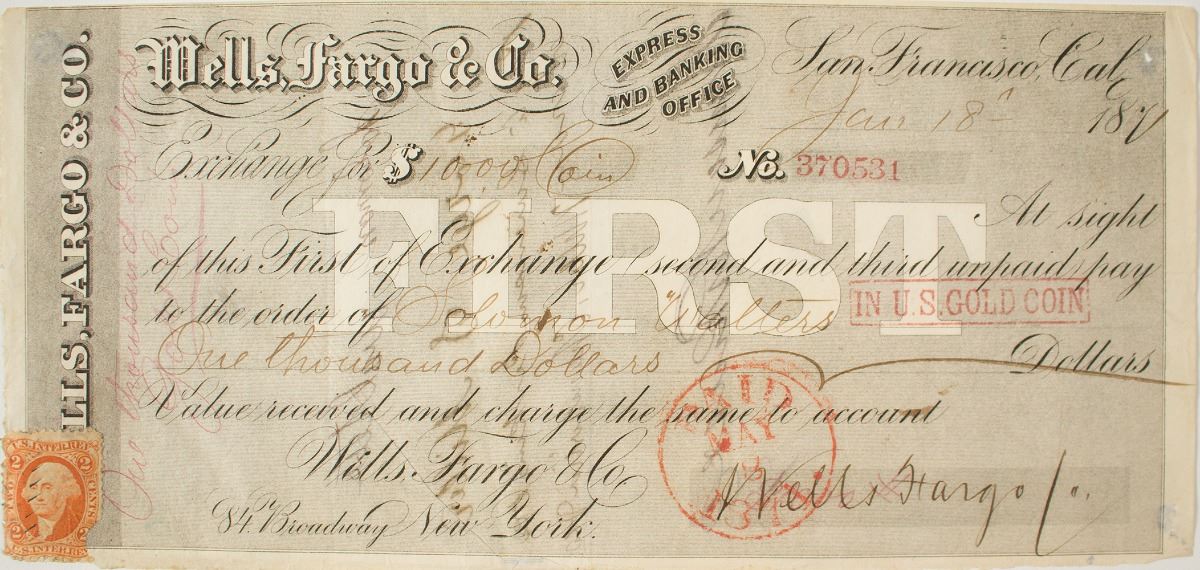 WELLS, FARGO & CO.
Wells, Fargo & Co.
EXPRESS
AND BANKING
OFFICE
San Francisco, Cal.
Jan 18 1871
Exchange for $1000 Coin No. 370531
FIRST
At sight
of this First of Exchange second and third unpaid pay
to the order of Solomon Walters IN U.S. GOLD COIN
One thousand Dollars Dollars
Value received and charge the same to account
Wells, Fargo & Co
84 Broadway New York.
Wells Fargo Co.
PAID
MAY
1871
One thousand Dollars
Gold Coin
U.S. INTER REV
2 2
TWO CENTS
2 2
U.S. INTER REV